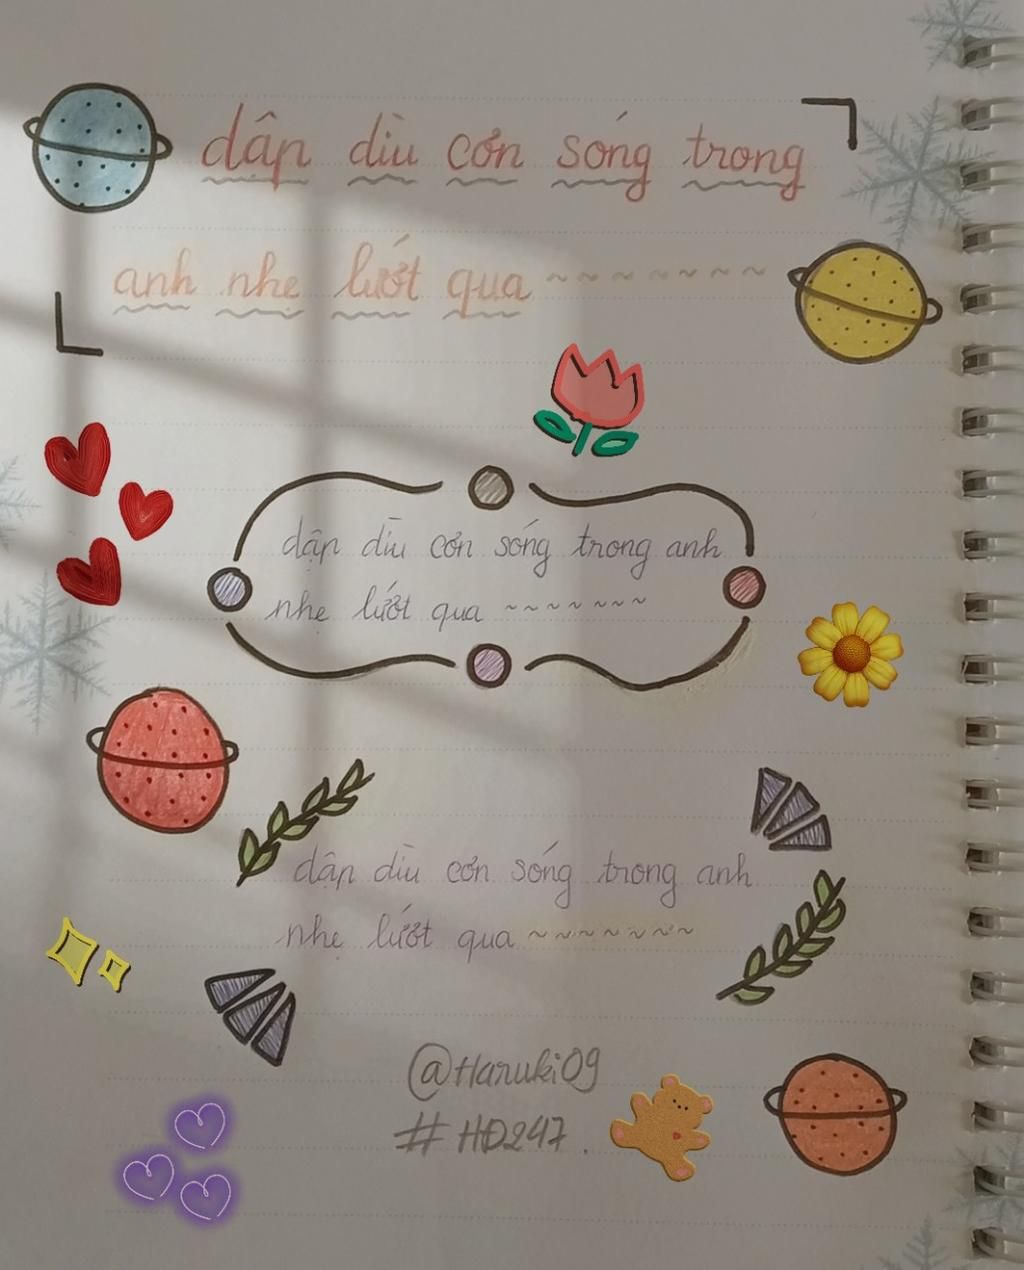 dập dìu cơn sóng trong
anh nhẹ lướt qua ~~~~~~~
dập dìu cơn sóng trong anh
nhẹ lướt qua ~~~~~~~
dập dìu cơn sóng trong anh
nhẹ lướt qua ~~~~~~~
@Haruki09
#HĐ247